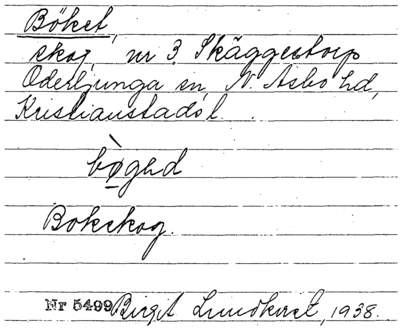 Böket,
skog, nr 3. Skäggestorp
Oderljunga sn, N. Åsbo hd,
Kristianstads l.
bø̀gəd
Bokskog.
Nr 5499 Birgit Lundkvist, 1938.